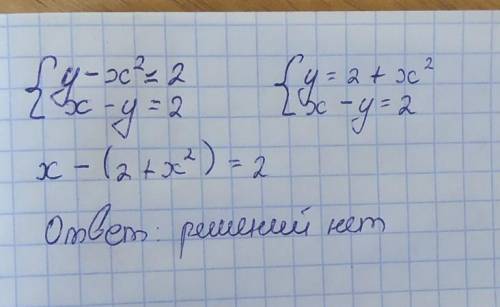 {y - x² = 2
{x - y = 2
{y = 2 + x²
{x - y = 2
x - (2 + x²) = 2
Ответ: решений нет